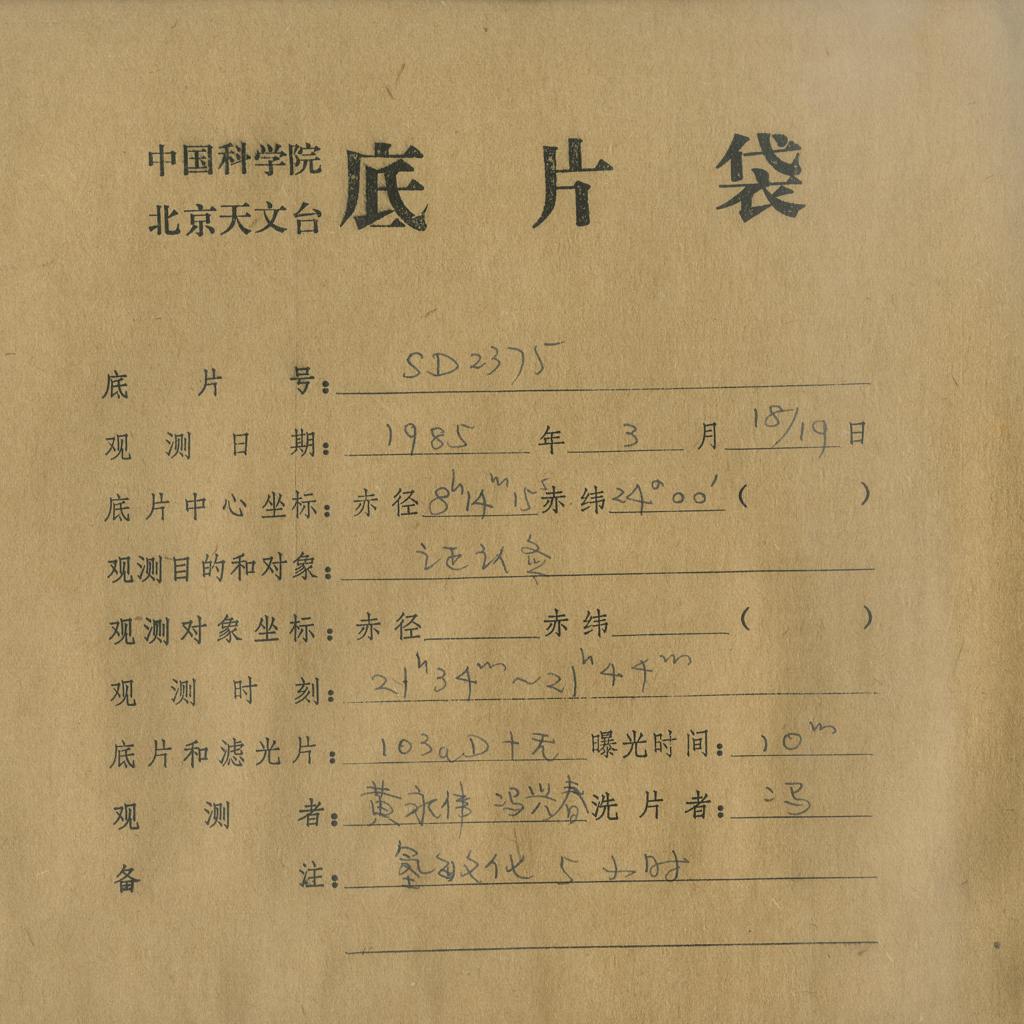 中国科学院
北京天文台
底片袋
底片号：SD2375
观测日期：1985年3月18/19日
底片中心坐标：赤径8ʰ14ᵐ15ˢ赤纬24°00′（ ）
观测目的和对象：证认
观测对象坐标：赤径 赤纬 （ ）
观测时刻：21ʰ34ᵐ~21ʰ44ᵐ
底片和滤光片：103aD+无 曝光时间：10ᵐ
观测者：黄永伟 冯兴春 洗片者：冯
备注：氢敏化5小时